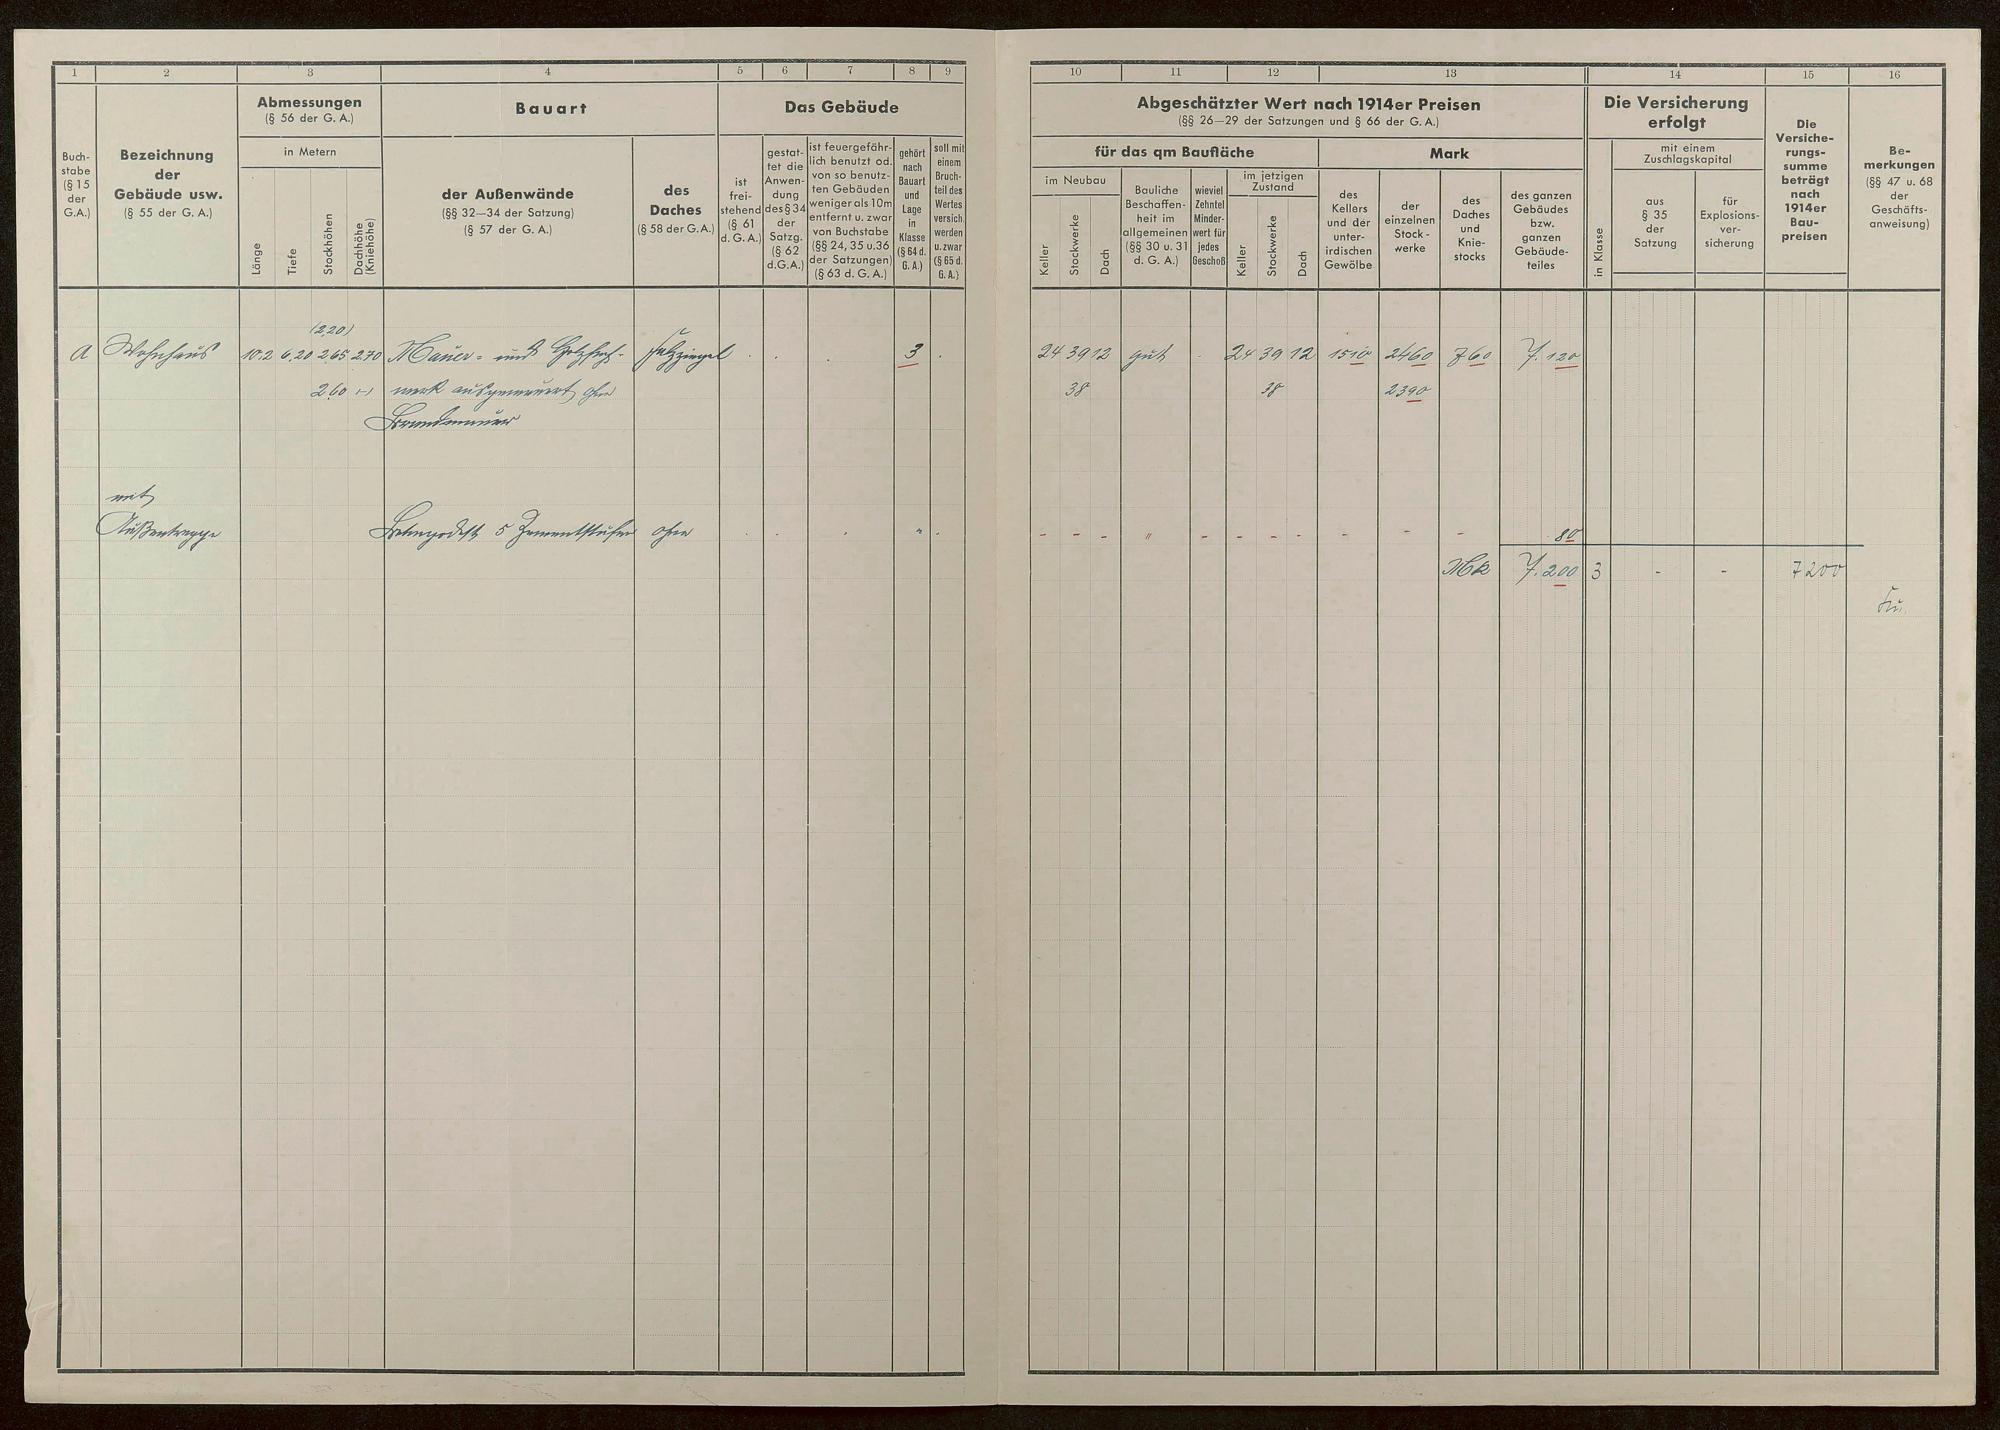 1 2 3 4 5 6 7 8 9 10 11 12 13 14 15 16
Buch-
stabe
(§ 15
der
G.A.)
Bezeichnung
der
Gebäude usw.
(§ 55 der G. A.)
Abmessungen
(§ 56 der G. A.)
in Metern
Länge
Tiefe
Stockhöhen
Dachhöhe
(Kniehöhe)
Bauart
der Außenwände
(§§ 32—34 der Satzung)
(§ 57 der G. A.)
des
Daches
(§ 58 der G.A.)
Das Gebäude
ist
frei-
stehend
(§ 61
d. G. A.)
gestat-
tet die
Anwen-
dung
des § 34
der
Satzg.
(§ 62
d.G.A.)
ist feuergefähr-
lich benutzt od.
von so benutz-
ten Gebäuden
weniger als 10m
entfernt u. zwar
von Buchstabe
(§§ 24, 35 u.36
der Satzungen)
(§ 63 d. G. A.)
gehört
nach
Bauart
und
Lage
in
Klasse
(§ 64 d.
G. A.)
soll mit
einem
Bruch-
teil des
Wertes
versich.
werden
u. zwar
(§ 65 d.
G. A.)
Abgeschätzter Wert nach 1914er Preisen
(§§ 26—29 der Satzungen und § 66 der G. A.)
für das qm Baufläche
im Neubau
Keller
Stockwerke
Dach
Bauliche
Beschaffen-
heit im
allgemeinen
(§§ 30 u. 31
d. G. A.)
wieviel
Zehntel
Minder-
wert für
jedes
Geschoß
im jetzigen
Zustand
Keller
Stockwerke
Dach
Mark
des
Kellers
und der
unter-
irdischen
Gewölbe
der
einzelnen
Stock-
werke
des
Daches
und
Knie-
stocks
des ganzen
Gebäudes
bzw.
ganzen
Gebäude-
teiles
Die Versicherung
erfolgt
in Klasse
mit einem
Zuschlagskapital
aus
§ 35
der
Satzung
für
Explosions-
ver-
sicherung
Die
Versiche-
rungs-
summe
beträgt
nach
1914er
Bau-
preisen
Be-
merkungen
(§§ 47 u. 68
der
Geschäfts-
anweisung)
(2,20)
A Wohnhaus 10.2 6.20 2.65 2.70 Mauer- und Holzfach- Falzziegel 3 24 39 12 gut 24 39 12 1510 2460 760 7.120
2.60 werk ausgemauert, ohne 38 38 2390
Brandmauer
mit
Außentreppe Betonpodest, 5 Zementstufen ohne " - - - " - - - - - - - 80
Mk 7.200 3 - - 7200